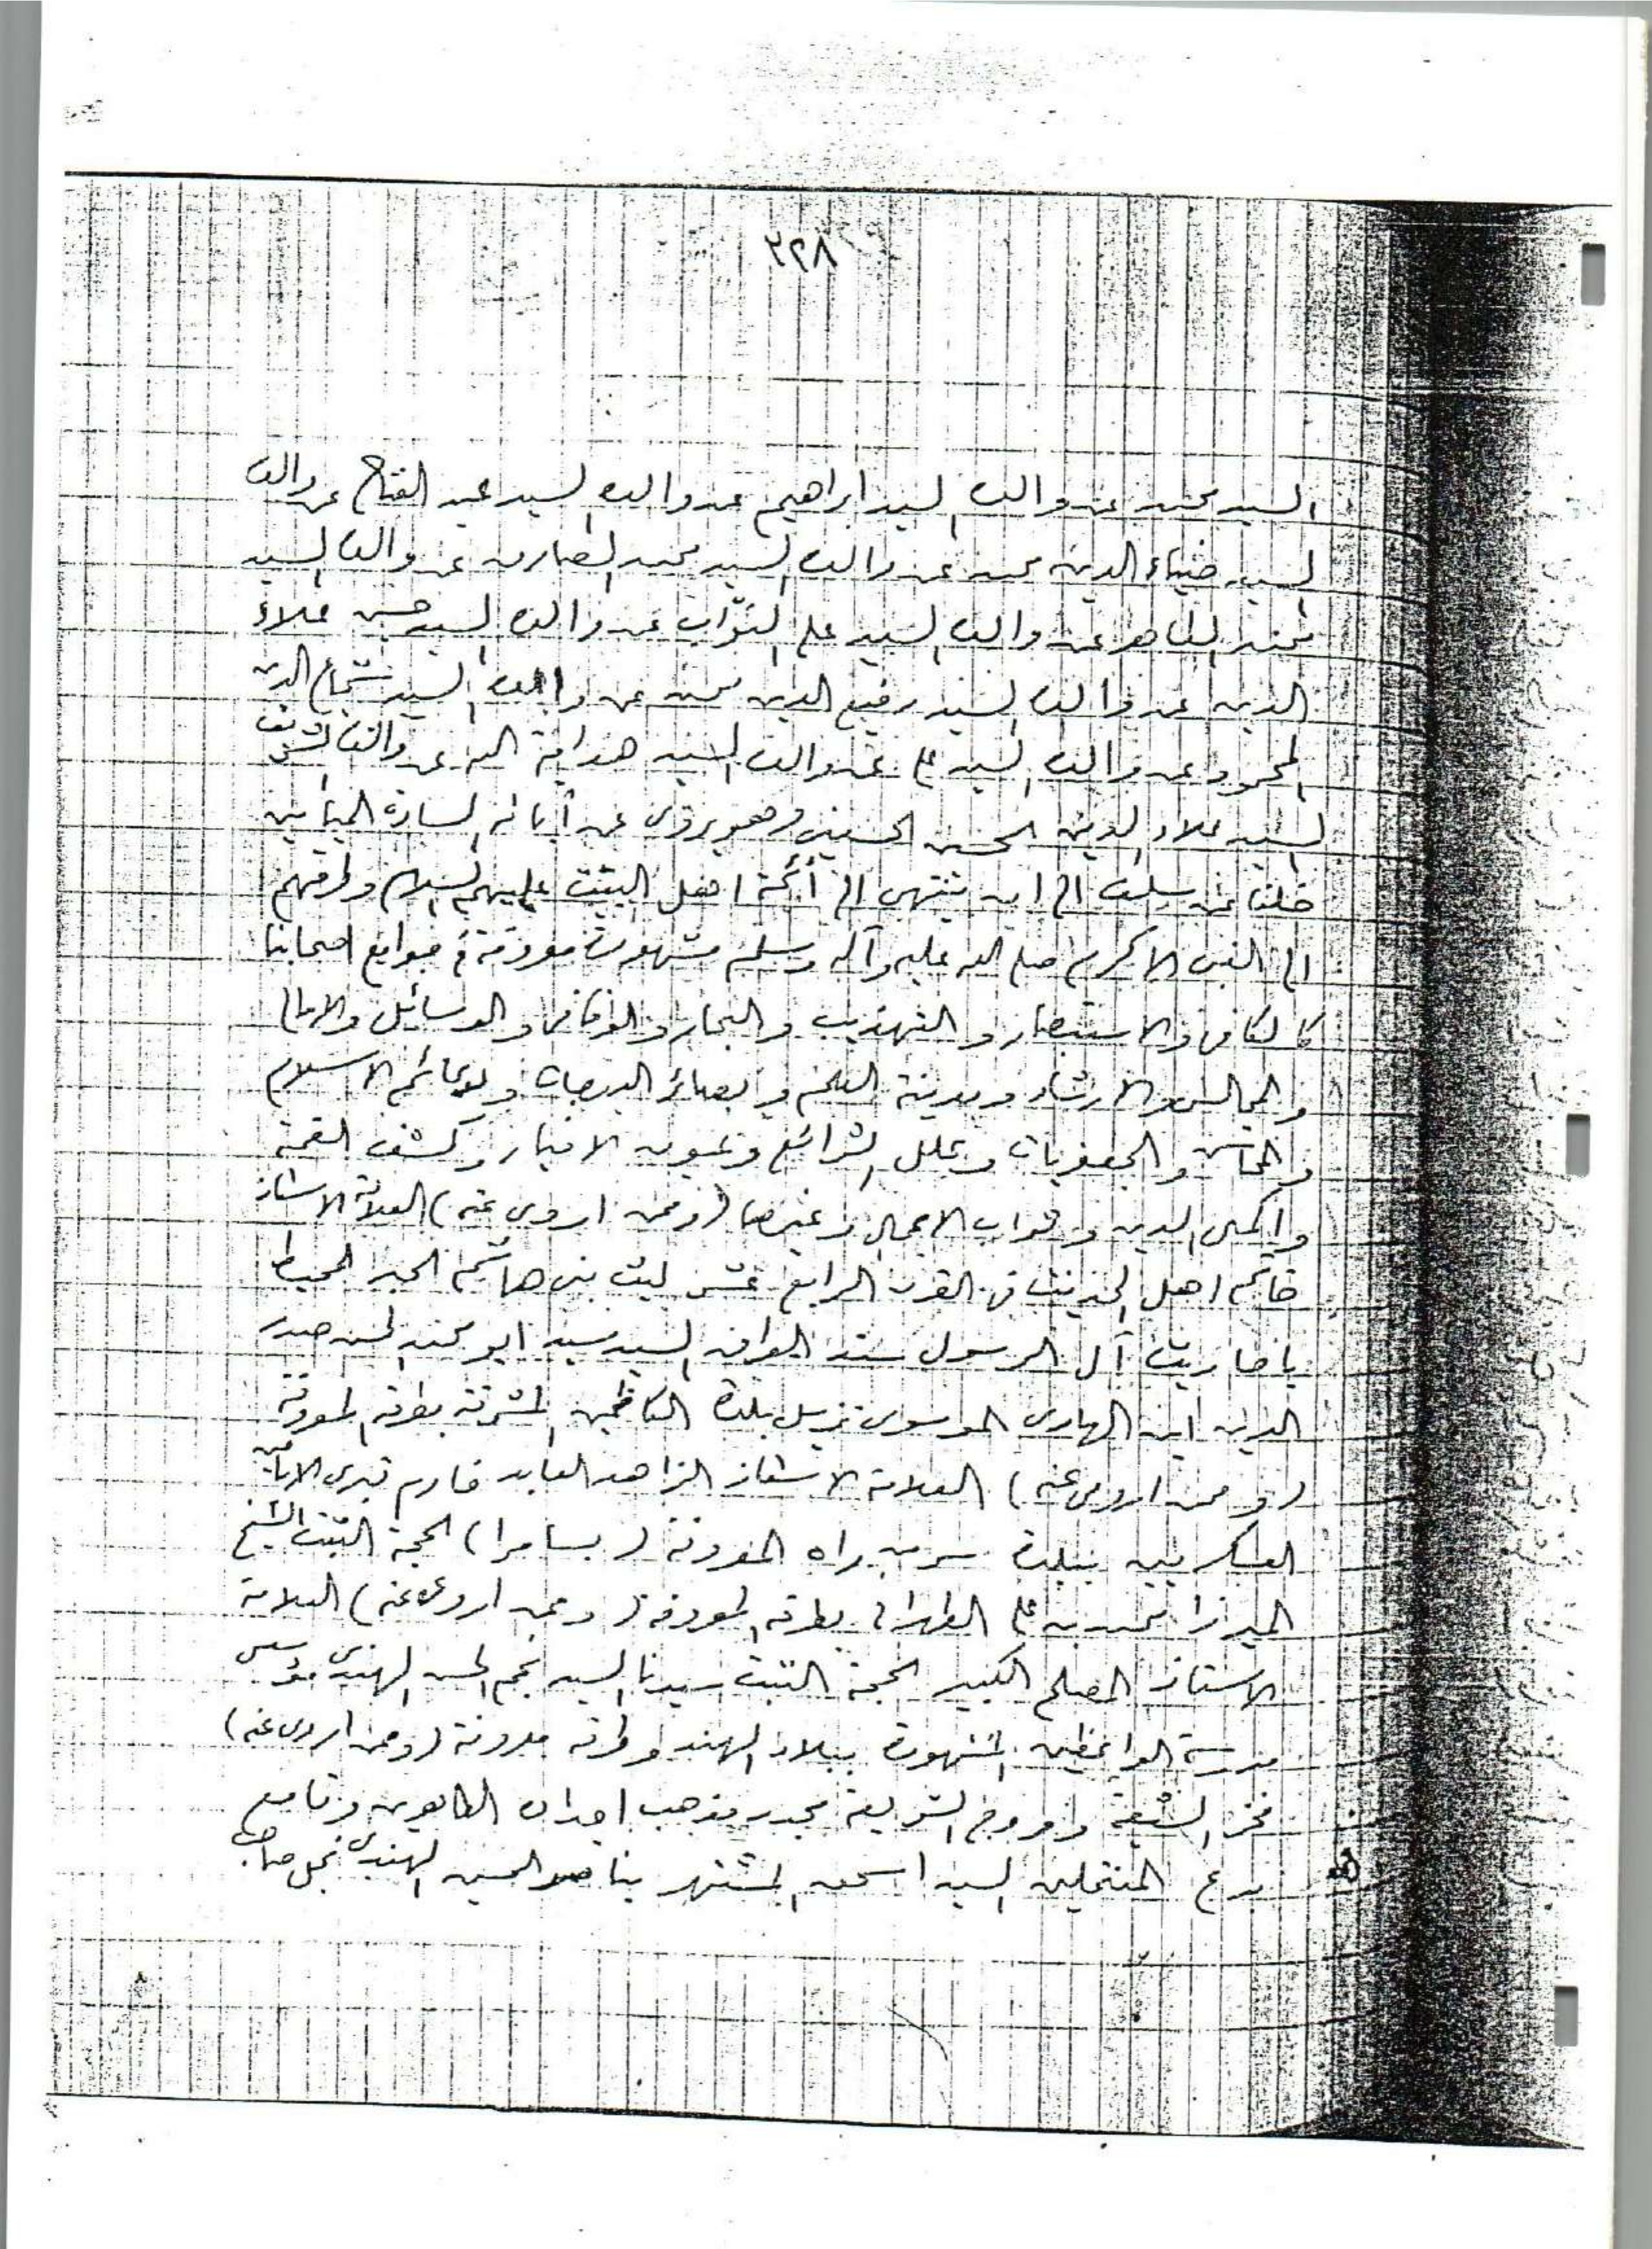 ٣٢٨
السيد محمد عن والده السيد ابراهيم عن والده السيد عبد الفتاح عن والده
السيد ضياء الدين محمد عن والده السيد محمد الصادق عن والده السيد
محمد الطاهر عن والده السيد علي النوّاب عن والده السيد حسين علاء
الدين عن والده السيد رفيع الدين محمد عن والده السيد شجاع الدين
المحمود عن والده السيد علي عن والده السيد هداية الله عن والده الشريف
السيد علاء الدين الحسين الحسيني وهو يروي عن آبائه السادة الميامين
خلفا عن سلف الى ان ينتهى الى أئمة اهل البيت عليهم السلام وطرقهم
الى النبي الاكرم صلى الله عليه وآله وسلم مشهورة معروفة في جوامع اصحابنا
كالكافي والاستبصار و التهذيب و البحار و الوافي و الوسائل والامالي
و المجالس والارشاد ومدينة العلم و بصائر الدرجات و دعائم الاسلام
و المحاسن و الجعفريات و علل الشرائع وعيون الاخبار و كشف الغمة
و اكمال الدين و ثواب الاعمال و غيرها (وممن اروى عنه) العلامة الاستاذ
خاتم اهل الحديث في القرن الرابع عشر ليث بني هاشم الحبر المحيط
باحاديث آل الرسول سند العراق السيد سيد ابو محمد الحسن صدر
الدين ابن الهادى الموسوى نزيل بلدة الكاظمين المشرفة بطرقه المعروفة
(و ممن اروى عنه) العلامة الاستاذ الزاهد العابد خادم قبرى الامامين
العسكريين ببلدة سر من راه المعروفة (بسامرا) الحجة الثبت الشيخ
الميرزا محمد بن علي الطهراني بطرقه المعروفة (وممن اروى عنه) العلامة
الاستاذ المصلح الكبير الحجة الثبت سيدنا السيد نجم الحسن الهندى مؤسس
مدرسة الواعظين المشهورة ببلاد الهند وطرقه مدونة (وممن اروى عنه)
فخر الشيعة و مروج الشريعة مجدد مذهب اجداده الطاهرين و قامع
بدع المنتحلين السيد اسحق المشتهر بناصر الحسين الهندى نجل صاحب